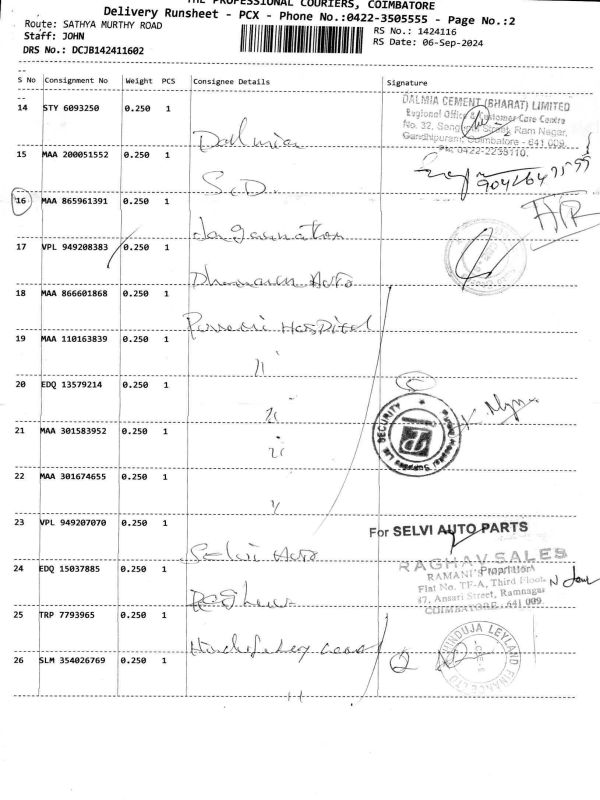 THE PROFESSIONAL COURIERS, COIMBATORE
Delivery Runsheet - PCX - Phone No.:0422-3505555 - Page No.:2
Route: SATHYA MURTHY ROAD
RS No.: 1424116
Staff: JOHN
RS Date: 06-Sep-2024
DRS No.: DCJB142411602
S No Consignment No Weight PCS Consignee Details Signature
14 STY 6093250 0.250 1
DALMIA CEMENT (BHARAT) LIMITED
Regional Office & Customer Care Centre
No. 32, Sengupta Street, Ram Nagar,
Gandhipuram, Coimbatore - 641 009.
Dalmia
15 MAA 200051552 0.250 1
S.D.
16 MAA 865961391 0.250 1
17 VPL 949208383 0.250 1
18 MAA 866601868 0.250 1
Hospital
19 MAA 110163839 0.250 1
20 EDQ 13579214 0.250 1
21 MAA 301583952 0.250 1
SECURITY
22 MAA 301674655 0.250 1
23 VPL 949207070 0.250 1
For SELVI AUTO PARTS
Selvi Auto
24 EDQ 15037885 0.250 1
RAGHAV SALES
RAMANI'S
Flat No. TF-A, Third Floor,
47, Ansari Street, Ramnagar
COIMBATORE - 641 009
25 TRP 7793965 0.250 1
26 SLM 354026769 0.250 1
HINDUJA LEYLAND FINANCE LTD
CBE-1